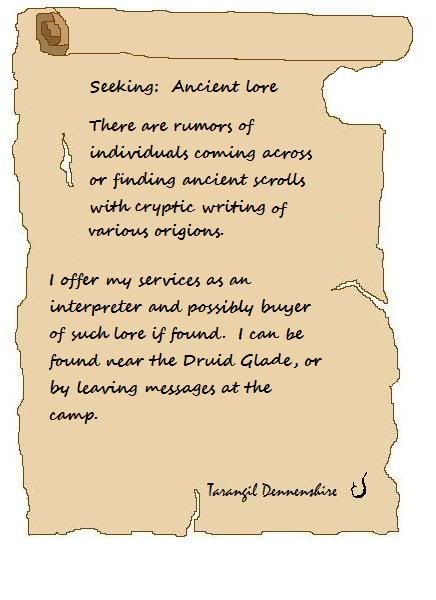 Seeking: Ancient lore
There are rumors of
individuals coming across
or finding ancient scrolls
with cryptic writing of
various origions.
I offer my services as an
interpreter and possibly buyer
of such lore if found. I can be
found near the Druid Glade, or
by leaving messages at the
camp.
Tarangil Dennenshire